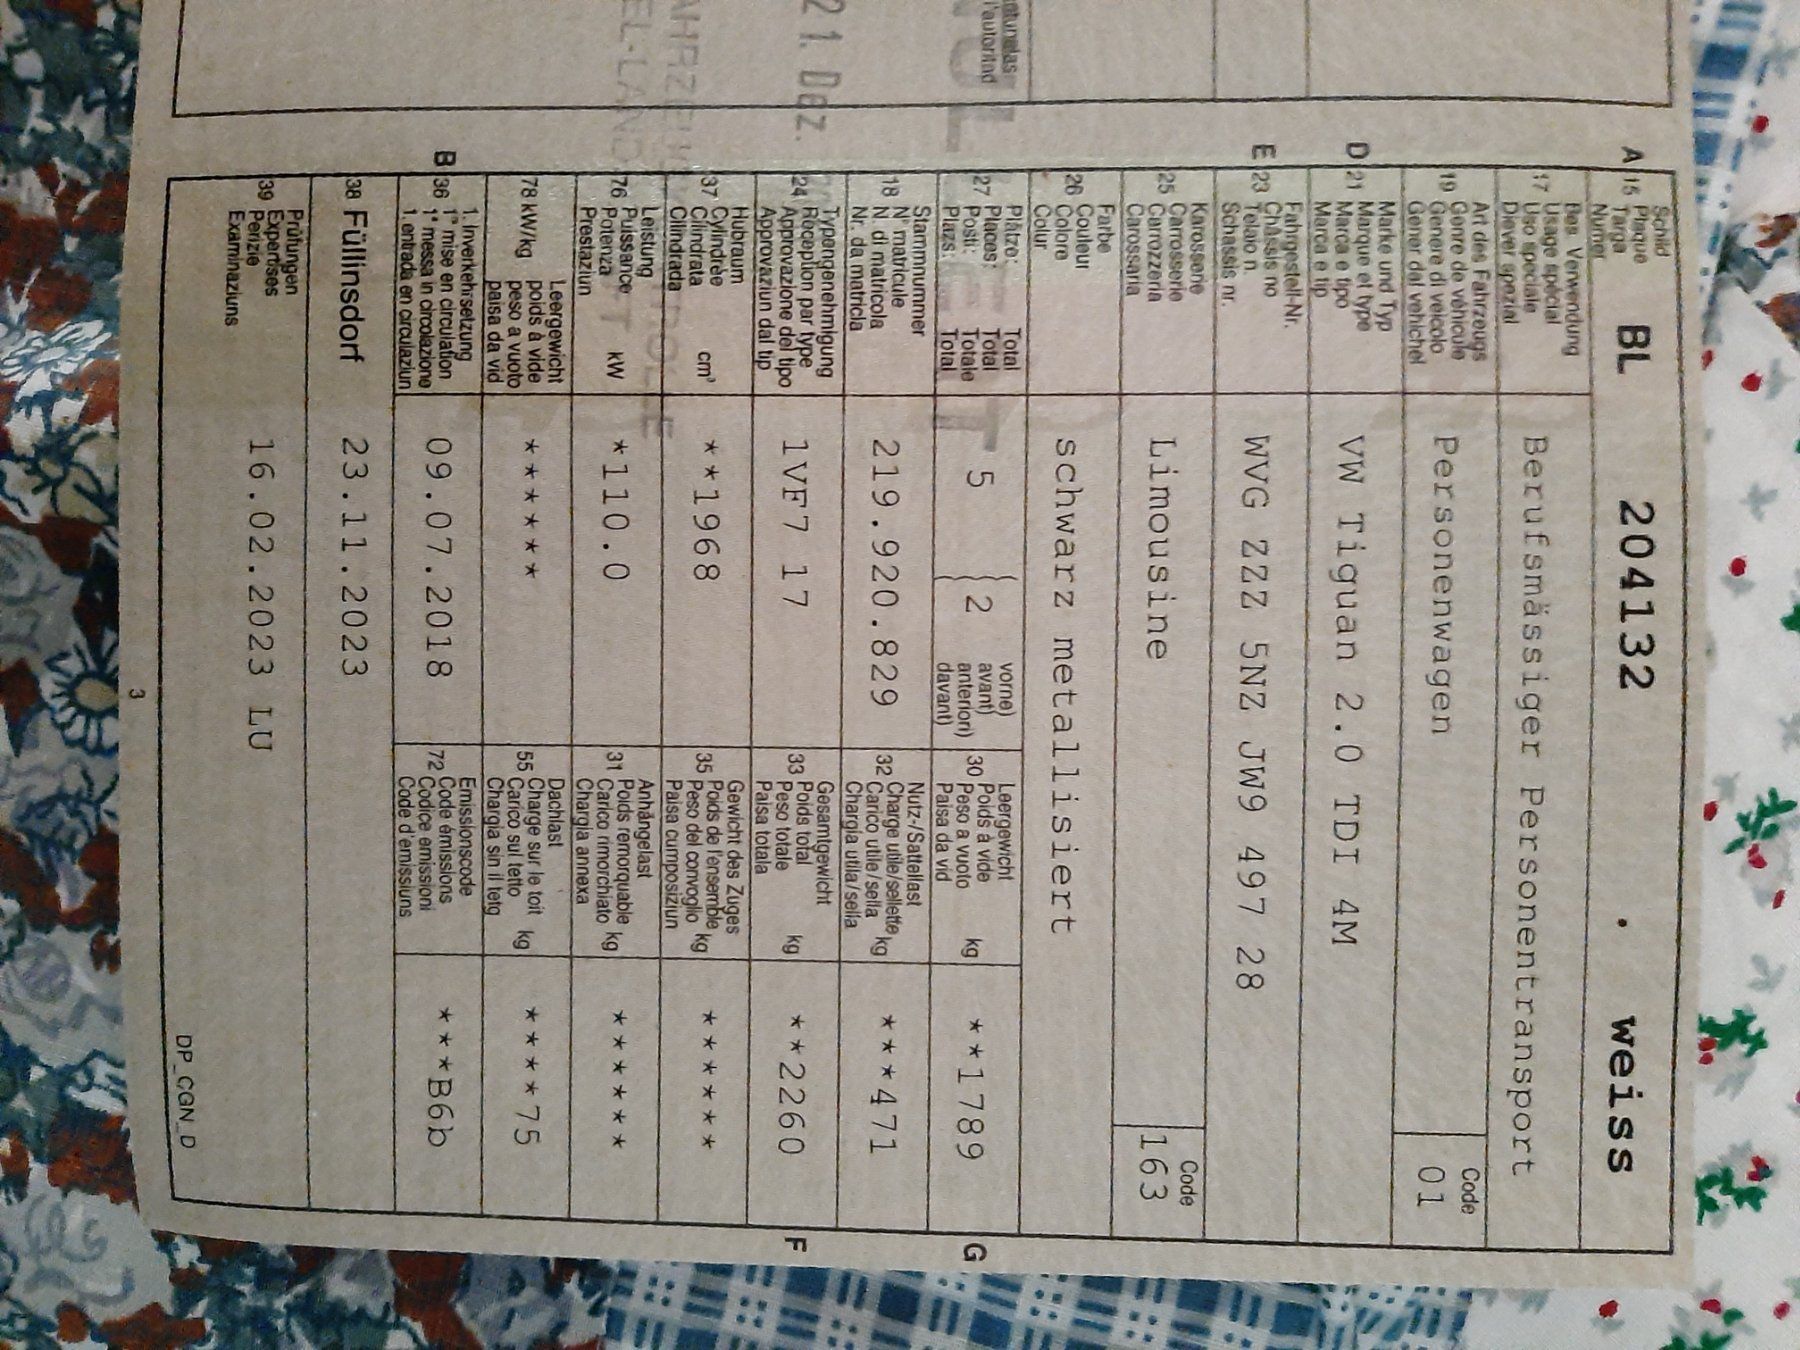 Schild
A 15 Plaque BL 204132 . weiss
Targa
Numer
Bes. Verwendung
17 Usage spécial Berufsmässiger Personentransport
Uso speciale
Diever spezial
Art des Fahrzeugs
19 Genre de véhicule Personenwagen Code 01
Genere di veicolo
Gener dal vehichel
Marke und Typ
D 21 Marque et type VW Tiguan 2.0 TDI 4M
Marca e tipo
Marca e tip
Fahrgestell-Nr.
E 23 Châssis no WVG ZZZ 5NZ JW9 497 28
Telaio n.
Schassis nr.
Karosserie
25 Carrosserie Limousine Code 163
Carrozzeria
Carossaria
Farbe
26 Couleur schwarz metallisiert
Colore
Colur
Plätze: Total vorne) Leergewicht
27 Places: Total 5 { 2 avant) 30 Poids à vide **1789 G
Posti: Totale anteriori) Peso a vuoto kg
Plazs: Total davant) Paisa da vid
Stammnummer Nutz-/Sattellast
18 N° matricule 219.920.829 32 Charge utile/sellette kg ***471
N di matricola Carico utile/sella
Nr. da matricla Chargia utila/sella
Typengenehmigung Gesamtgewicht
24 Réception par type 1VF7 17 33 Poids total **2260 F
Approvazione del tipo Peso totale kg
Approvaziun dal tip Paisa totala
Hubraum Gewicht des Zuges
37 Cylindrée **1968 35 Poids de l'ensemble ******
Cilindrata cm³ Peso del convoglio kg
Cilindrada Paisa cumposiziun
Leistung Anhängelast
76 Puissance *110.0 31 Poids remorquable ******
Potenza kW Carico rimorchiato kg
Prestaziun Chargia annexa
Leergewicht Dachlast
78 kW/kg poids à vide ****** 55 Charge sur le toit ****75
peso a vuoto Carico sul tetto kg
paisa da vid Chargia sin il tetg
1. Inverkehrsetzung Emissionscode
B 36 1re mise en circulation 09.07.2018 72 Code émissions ***B6b
1a messa in circolazione Codice emissioni
1. entrada en circulaziun Code d'emissiuns
38 Füllinsdorf 23.11.2023
Prüfungen
39 Expertises 16.02.2023 LU
Perizie
Examinaziuns
DP_CGN_D
3
l'autoritad
21. Dez.